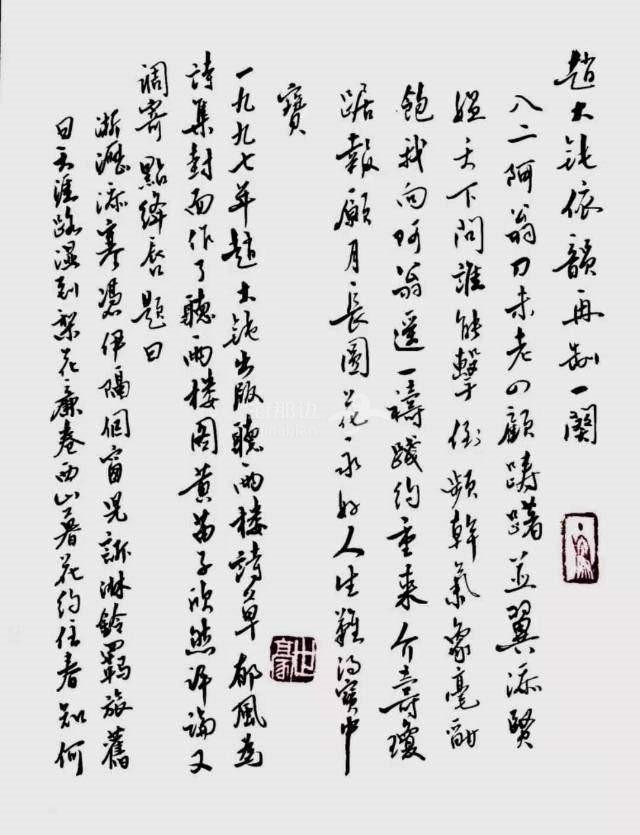 趙大鈍依韻再制一闋
八二阿翁刀未老四顧躊躇並翼添賢
媼天下問誰能擊倒頻幹氣象毫酣
飽我向阿翁遥一禱踐約重来介壽瓊
踞報願月長圓花永好人生難得寶中
寶
一九九七年趙大鈍出版聽雨楼詩草郁風為
詩集封面作了聽雨楼图黄苗子欣然评論又
调寄點絳唇題曰
淅瀝添寒凴伊隔個窗兒訴淋鈴羈旅舊
曰天涯路濕到梨花簾卷西山暮花約住春知何